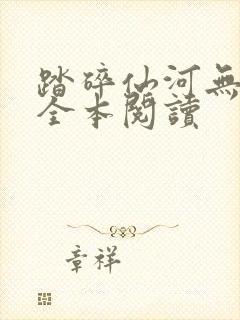 踏碎仙河無
全本閱讀
章祥